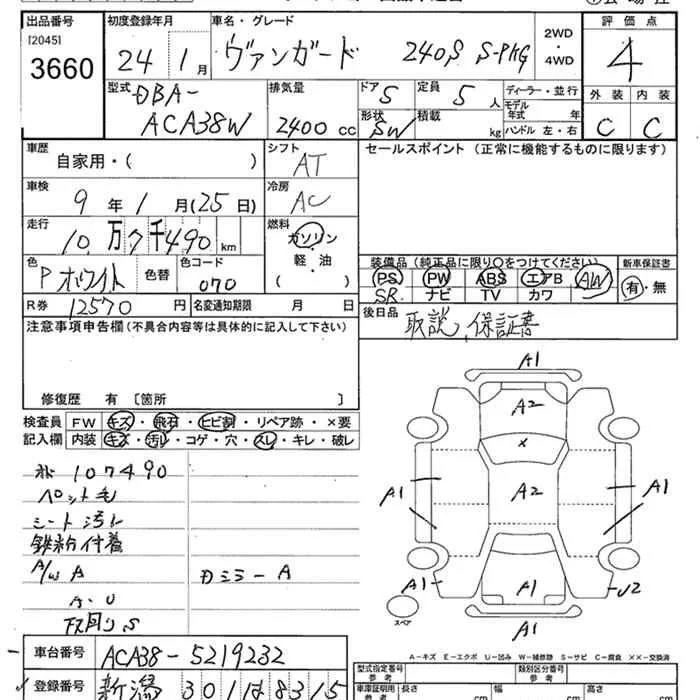 出品番号
[2045]
3660
初度登録年月
24年 1月
車名・グレード
ヴァンガード 240S S-PKG
2WD
・
4WD
評価点
4
外装 内装
C C
型式
DBA-
ACA38W
排気量
2400 cc
ドア 5
形状 SW
定員 5 人
積載 kg
ディーラー・並行
モデル年式 年
ハンドル 左・右
車歴
自家用・( )
シフト
AT
セールスポイント (正常に機能するものに限ります)
車検
9年 1月(25日)
冷房
AC
走行
10万7千490 km
燃料
ガソリン
・
軽・油
( )
色
Pホワイト
色替
色コード
070
装備品 (純正品に限り○をつけてください)
PS PW ABS エアB AW
SR ナビ TV カワ
新車保証書
有・無
R券 12570 円
名変通知期限 月 日
後日品
取説、保証書
注意事項申告欄 (不具合内容等は具体的に記入して下さい)
修復歴 有 [箇所 ]
検査員記入欄
FW キズ・飛石・ヒビ割・リペア跡・×要
内装 キズ・汚レ・コゲ・穴・スレ・キレ・破レ
107490
ペット毛
シート汚レ
鉄粉付着
A/W A
A・U
下回りS
Dミラー A
A1
A2
×
A1
A2
A1
A1
A1
U2
A1
スペア
A-キズ E-エクボ U-凹み W-補修跡 S-サビ C-腐食 ××-交換済
車台番号
ACA38-5219232
登録番号
新潟 301 は 8315
型式指定番号
類別区分番号
車庫証明用
参考
長さ
幅 cm
高さ cm